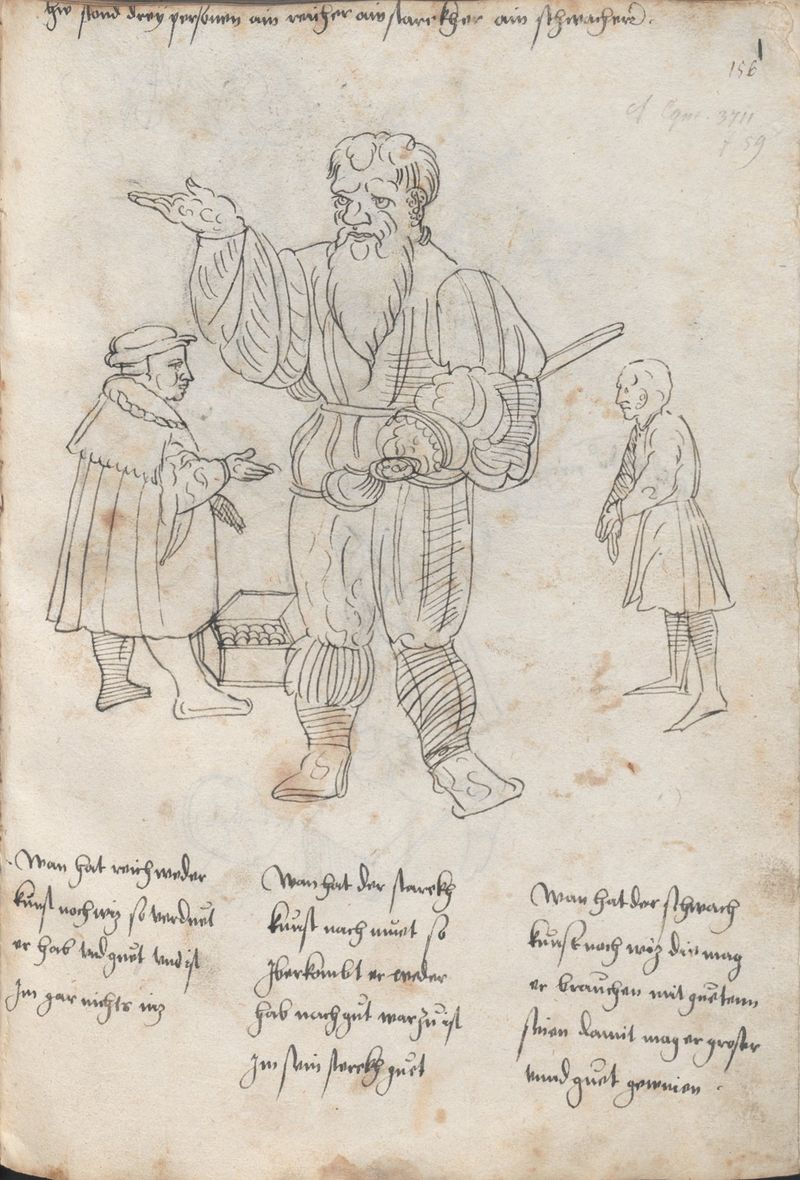 hie stond drey personen ain reicher ain starckher ain schwacher.
1
156
Cgm. 3711
f 59
Wan hat reich weder
kunst noch wiz so verduet
er hab vnd guet vnd ist
Im gar nichts niz
Wan hat der starckh
kunst nach muet so
Iberkombt er weder
hab nach gut warzu ist
Im sein sterckh guet
Wan hat der schwach
kunst noch wiz die mag
er brauchen mit guetem
sinen damit mag er groster
vnnd guet gewinen.